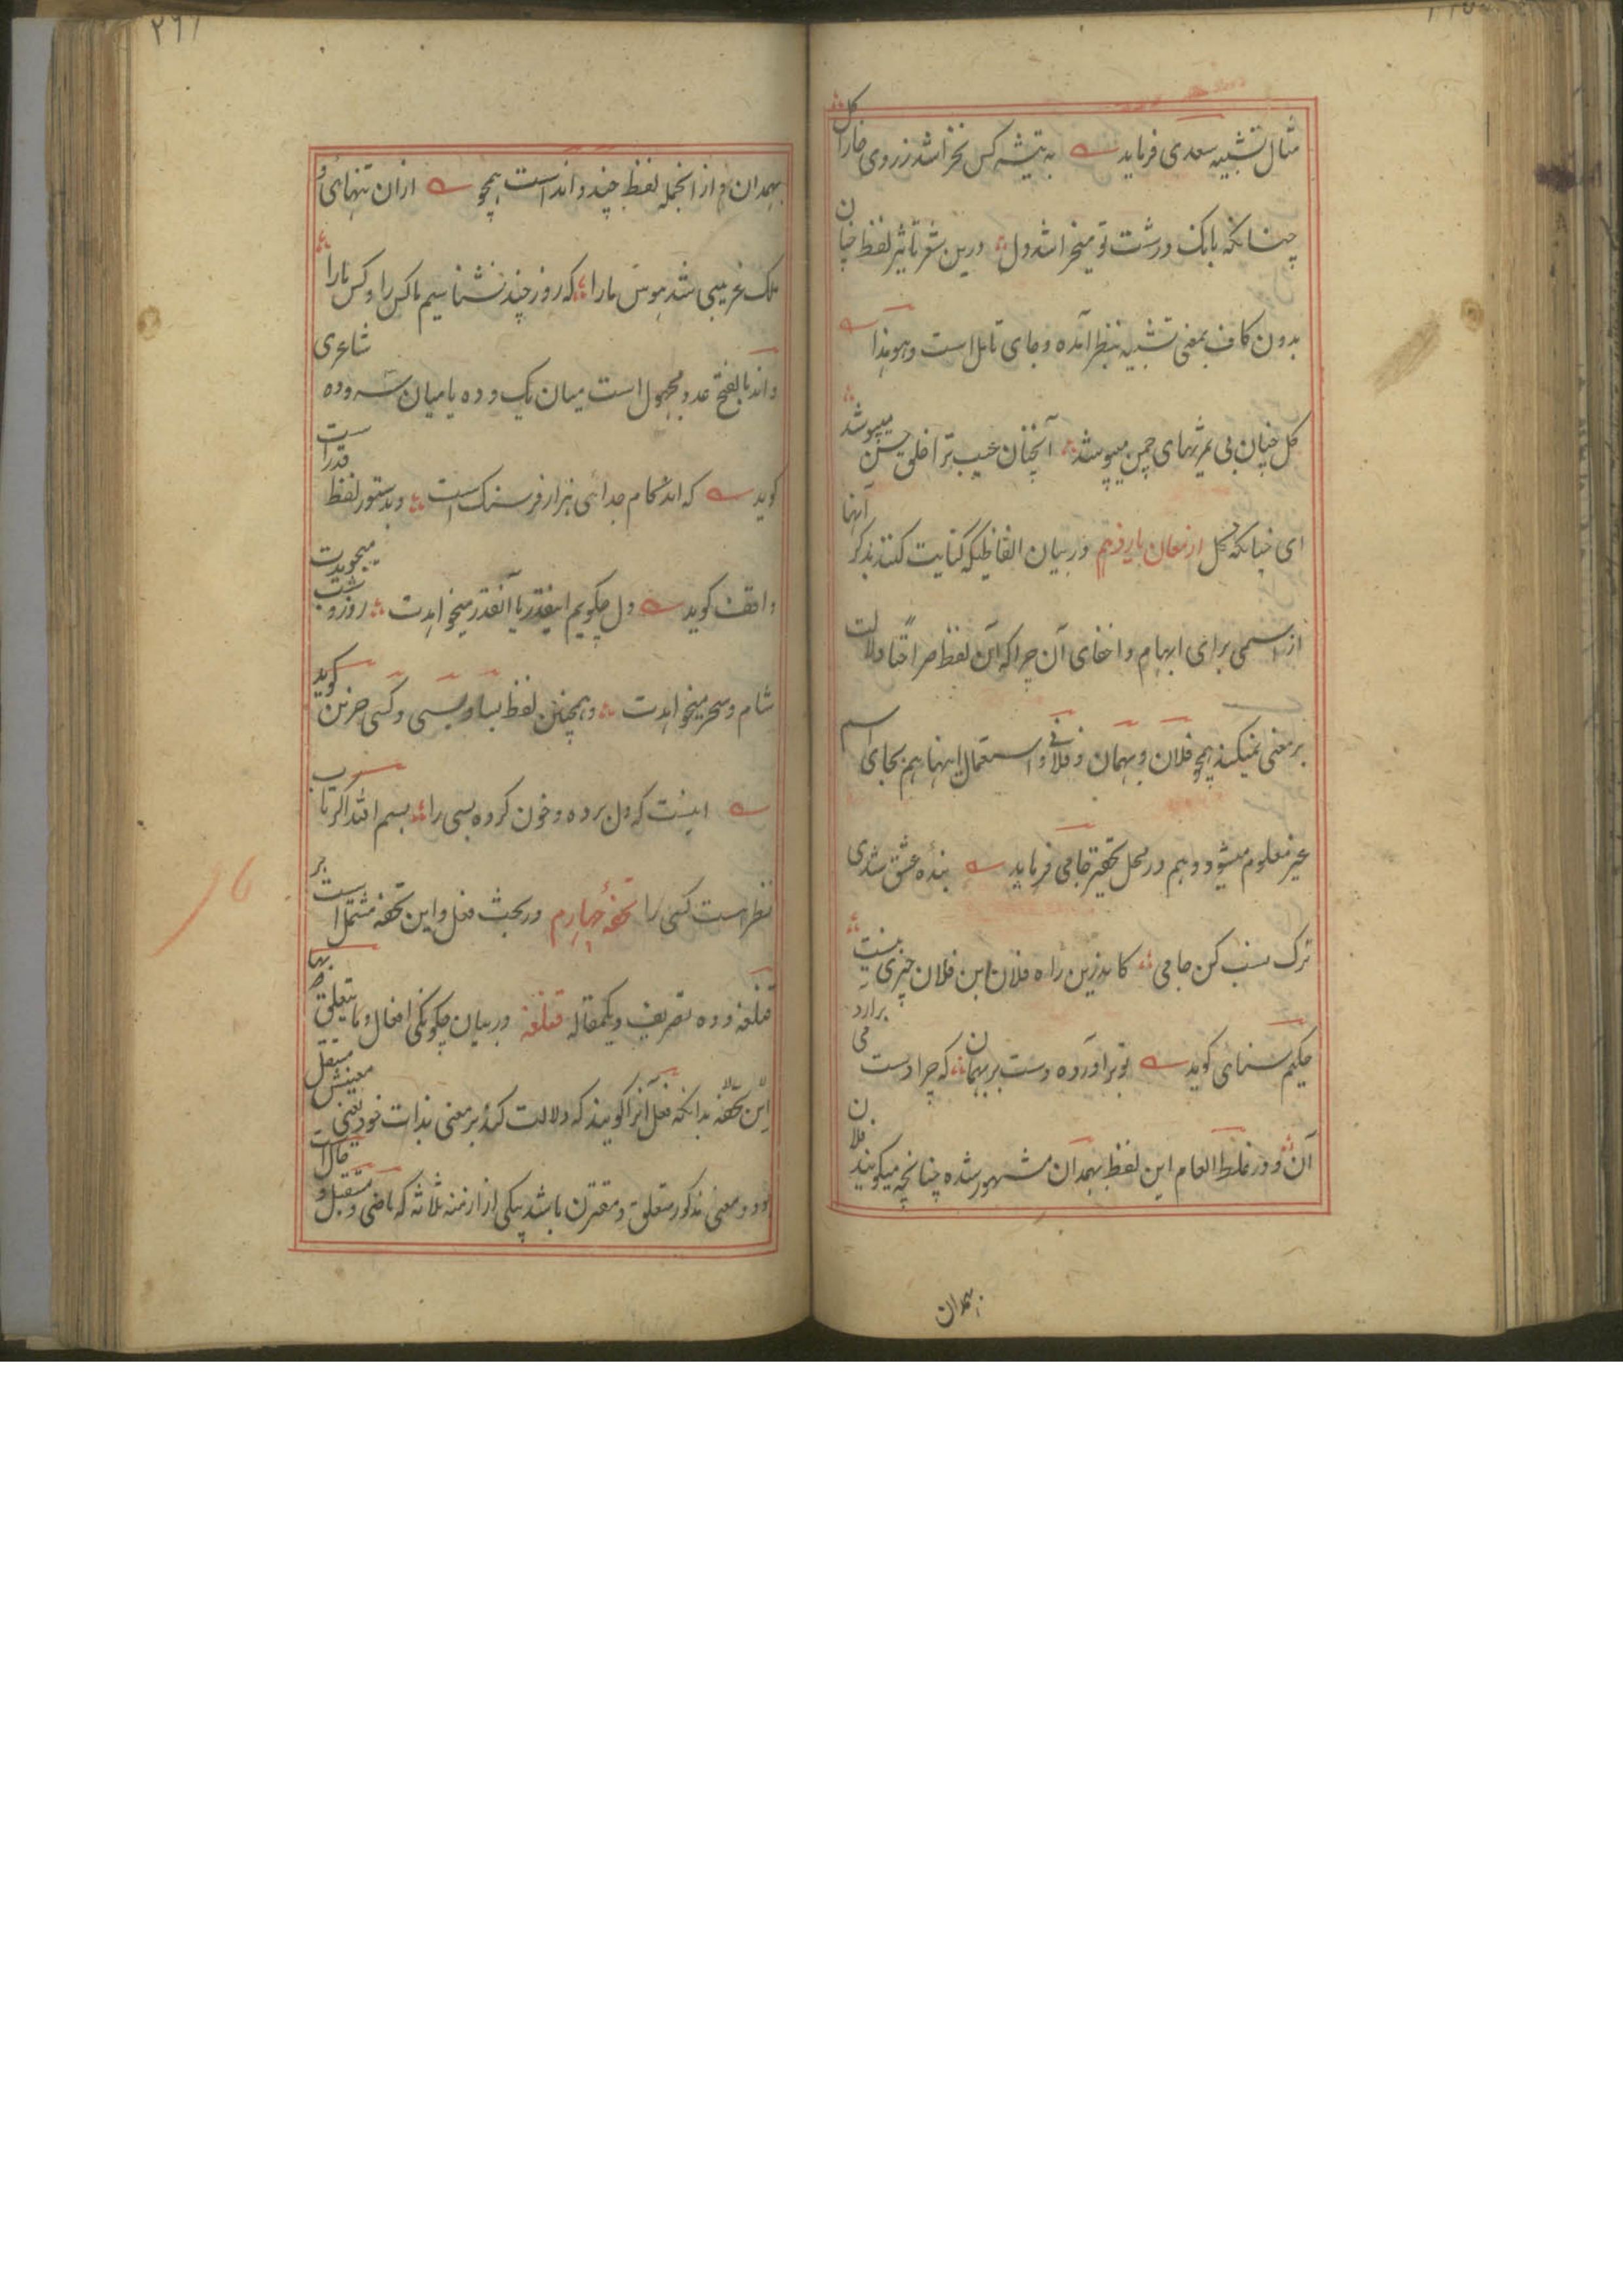 مثال تشبیه سعدی فرماید به تیشه کس نخراشد ز روی خارا کل
چنانکه بانک درشت تو میخراشد دل درین شعر تاثیر لفظ چنان
بدون کاف بمعنی تشبیه بنظر آمده و جای تامل است و هو هذا
کل چنان بی ثمریهای چمن میپوشد آنچنان عیب ترا خلق حسن میپوشد
ای چنانکه کل ارمغان یازدهم در بیان الفاظیکه کنایت کنند بذکر آنها
از اسمی برای ابهام و اخفای آن چرا که آن لفظ صراحتا دلالت
بر معنی نمیکند همچو فلان و بهمان و فلانی و استعمال اینها هم بجای اسم
غیر معلوم میشود و هم در محل تحقیر جامی فرماید بنده عشق شدی
ترک نسب کن جامی کاندرین راه فلان ابن فلان چیزی نیست
حکیم سنائی کوید تو برآورده دست بر بهمان که چرا دست می برارد
آن و در غلط العام این لفظ بهمدان مشهور شده چنانچه میکویند فلان
بهمدان
۲۶۱
بهمدان و از انجمله لفظ چند و اند است همچو ازان تنهائی و
ملک غریبی شد هوس ما را که روز چند نشناسیم ما کس را و کس ما را
و اند بالفتح عدد مجهول است میان یک و ده یا میان سه و ده شاعری
کوید که اند کام جدائی هزار فرسنک است و بدستور لفظ قدر است
واقف کوید دل چکویم اینقدر یا آنقدر میخواهدت روز و شب میجویدت
شام و سحر میخواهدت و همچنین لفظ بسا و بسی و کسی حزین کوید
اینست که دل برده و خون کرده بسی را بسم الله اکر تاب
نظر است کسی را تحفهٔ چهارم در بحث فعل و این تحفه مشتمل است بر
قنلغه و ده تصریف و یکمقاله قنلغه در بیان چکونکی افعال و ما یتعلق بها
این تحفه بدانکه فعل آنرا کویند که دلالت کند بر معنی بذات خود یعنی معنیش مستقل
بود و معنی مذکور متعلق و مقترن باشد بیکی از ازمنه ثلاثه که ماضی و مستقبل و حال است